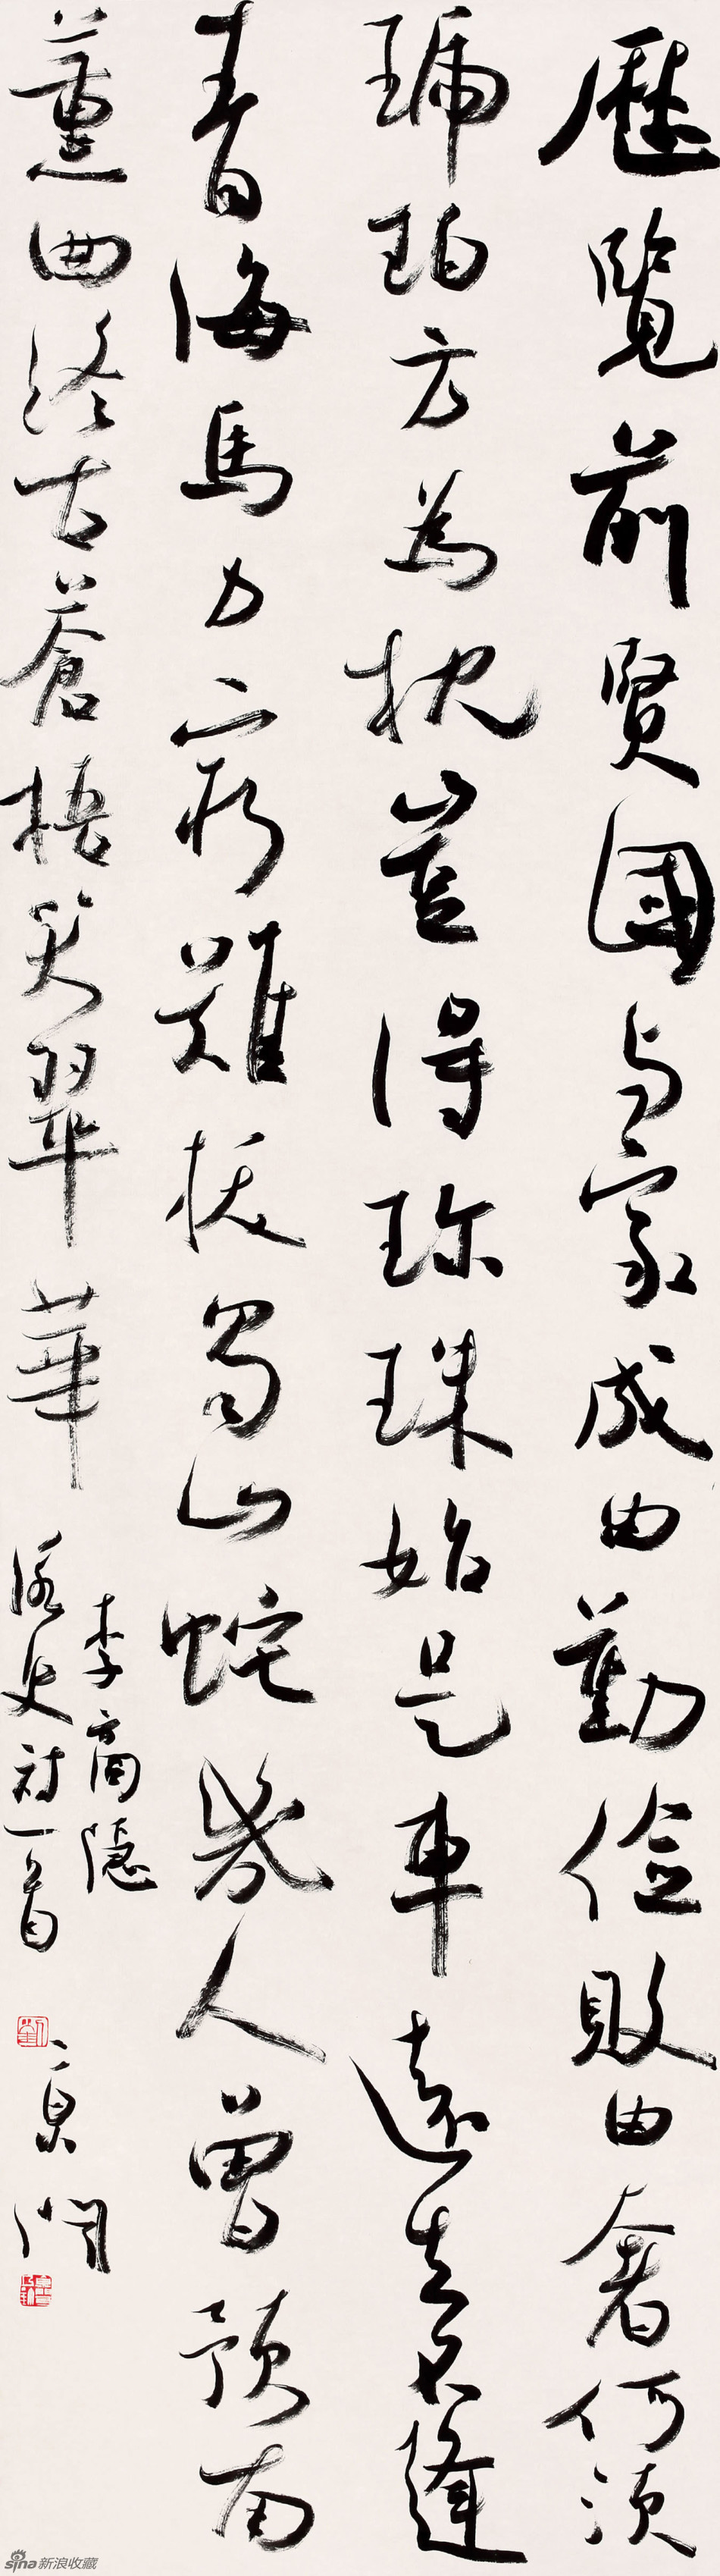 歷覽前賢國与家成由勤儉敗由奢何須
琥珀方為枕豈得珍珠始是車遠去不逢
青海馬力窮難拔蜀山蛇幾人曾預南
薰曲終古蒼梧哭翠華
李商隱
詠史詩一首
sina新浪收藏